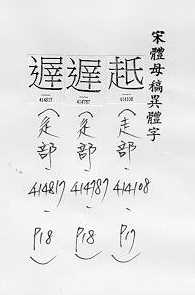 宋體母稿異體字
414108
(走部、414108、P17)
414787
(辵部、414787、P18)
414817
(辵部、414817、P18)